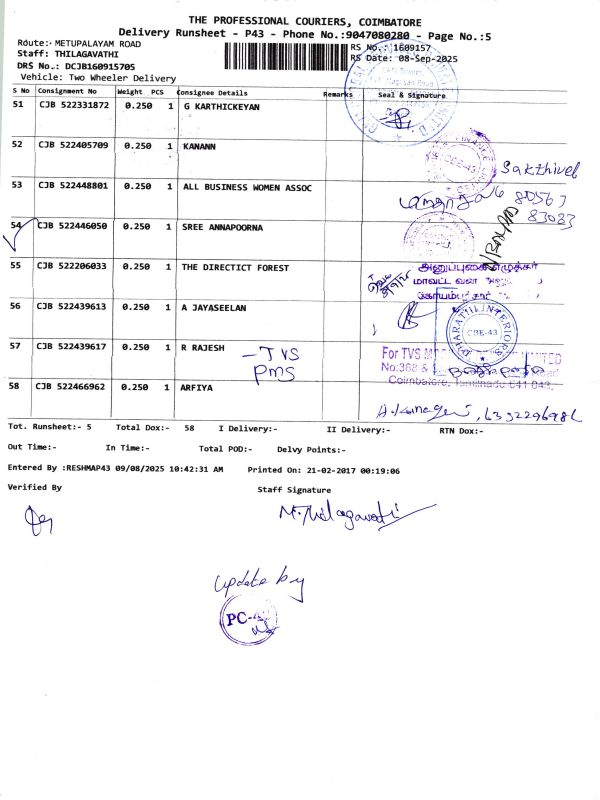 THE PROFESSIONAL COURIERS, COIMBATORE
Delivery Runsheet - P43 - Phone No.:9047080280 - Page No.:5
Route:- METUPALAYAM ROAD
Staff: THILAGAVATHI
DRS No.: DCJB160915705
Vehicle: Two Wheeler Delivery
RS No.: 1609157
RS Date: 08-Sep-2025
S No Consignment No Weight PCS Consignee Details Remarks Seal & Signature
51 CJB 522331872 0.250 1 G KARTHICKEYAN
52 CJB 522405709 0.250 1 KANANN
CBE-43
Sakthivel
53 CJB 522448801 0.250 1 ALL BUSINESS WOMEN ASSOC
54 CJB 522446050 0.250 1 SREE ANNAPOORNA
55 CJB 522206033 0.250 1 THE DIRECTICT FOREST
மாவட்ட வன
56 CJB 522439613 0.250 1 A JAYASEELAN
BHARATHI INTERIORS
CBE-43
57 CJB 522439617 0.250 1 R RAJESH
- TVS
PMS
For TVS
No:368 &
Coimbatore, Tamilnadu 641 043.
58 CJB 522466962 0.250 1 ARFIYA
Tot. Runsheet:- 5 Total Dox:- 58 I Delivery:- II Delivery:- RTN Dox:-
Out Time:- In Time:- Total POD:- Delvy Points:-
Entered By :RESHMAP43 09/08/2025 10:42:31 AM Printed On: 21-02-2017 00:19:06
Verified By Staff Signature
M. Thilagavathi
update by